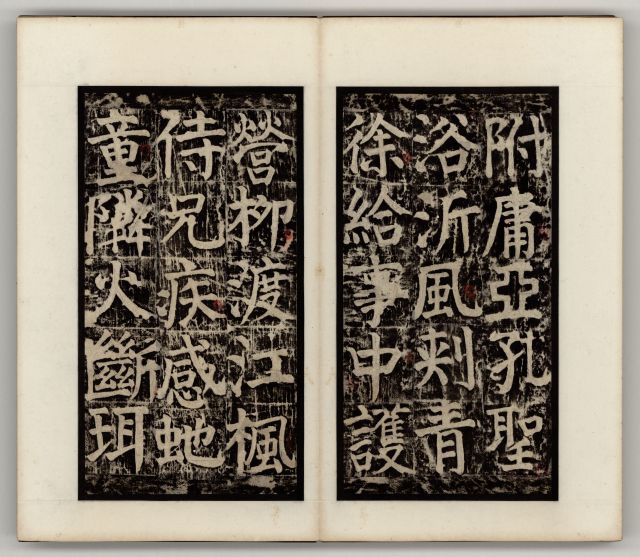 附庸亞孔聖
浴沂風刾青
徐給事中護
營柳渡江楓
侍兄疾感虵
童隣火斷珥